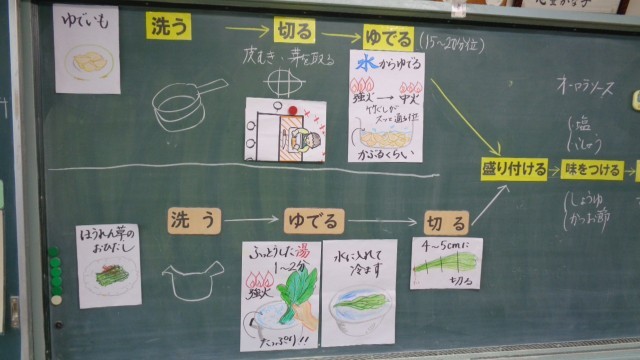 ゆでいも
洗う
切る
ゆでる
(15～20分位)
皮むき・芽を取る
水からゆでる
強火→中火
竹ぐしが
スッと通る位
かぶるくらい
オーロラソース
塩
こしょう
盛り付ける
味をつける
しょうゆ
かつお節
洗う
ゆでる
切る
ほうれん草の
おひたし
ふっとうした湯
1～2分
強火
たっぷり!!
水に入れて
冷ます
4～5cmに
切る